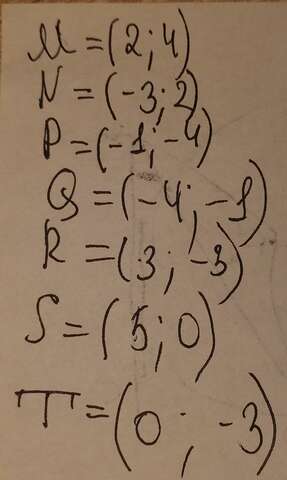 M = (2; 4)
N = (-3; 2)
P = (-1; -4)
Q = (-4; -1)
R = (3; -3)
S = (5; 0)
T = (0; -3)